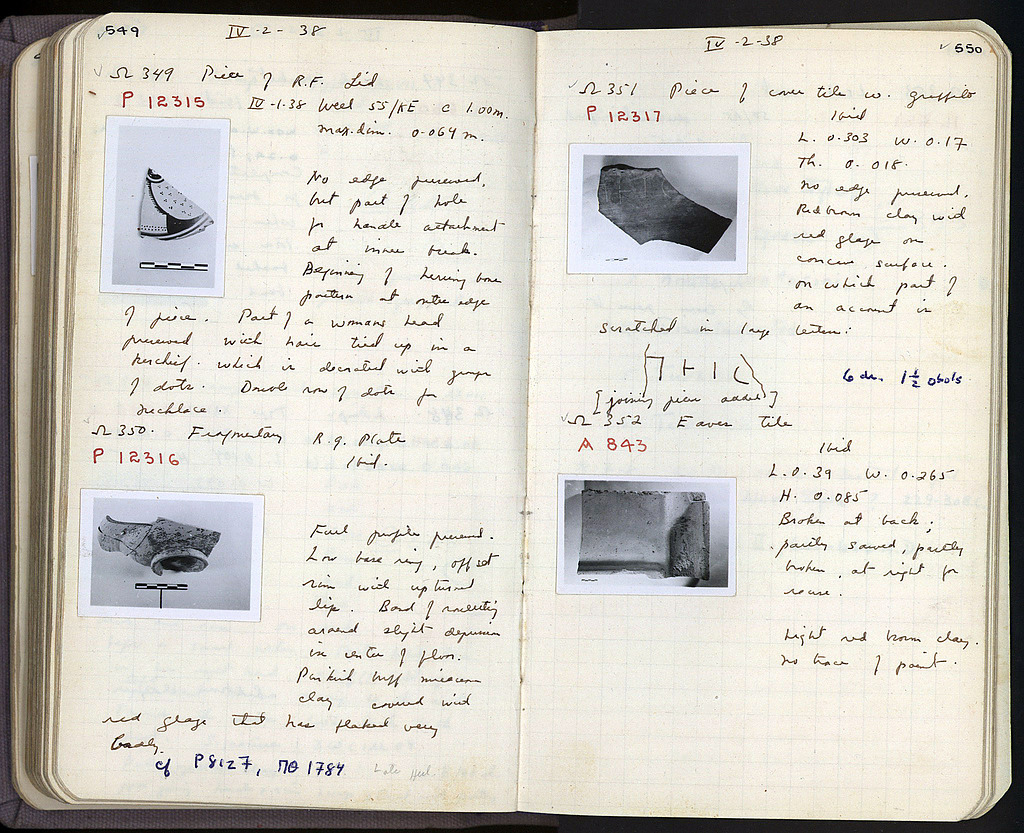 549
IV-2-38
Ω 349 Piece of R.F. Lid
P 12315 IV-1-38 Well 55/ΚΕ C 1.00m.
max. dim. 0.064 m.
No edge preserved,
but part of hole
for handle attachment
at inner break.
Beginning of herring bone
pattern at outer edge
of piece. Part of a womans head
preserved with hair tied up in a
kerchief. which is decorated with groups
of dots. Double row of dots for
necklace.
Ω 350. Fragmentary R.g. Plate
P 12316 Ibid.
Full profile preserved.
Low base ring, offset
rim with upturned
lip. Band of rouletting
around slight depression
in center of floor.
Pinkish buff micaceous
clay covered with
red glaze that has flaked very
badly.
cf P8127, ΠΘ 1784 Late Hell.
550
IV-2-38
Ω 351 Piece of cover tile w. graffito
P 12317 Ibid
L. 0.303 W. 0.17
Th. 0.018.
No edge preserved.
Red brown clay with
red glaze on
concave surface.
on which part of
an account is
scratched in large letters:
Γ Η Ι C
6 dr. 1 ½ obols
[joining piece added]
Ω 352 Eaves tile
A 843 Ibid
L. 0.39 W. 0.265
H. 0.085
Broken at back;
partly sawed, partly
broken, at right for
reuse.
Light red brown clay.
No trace of paint.